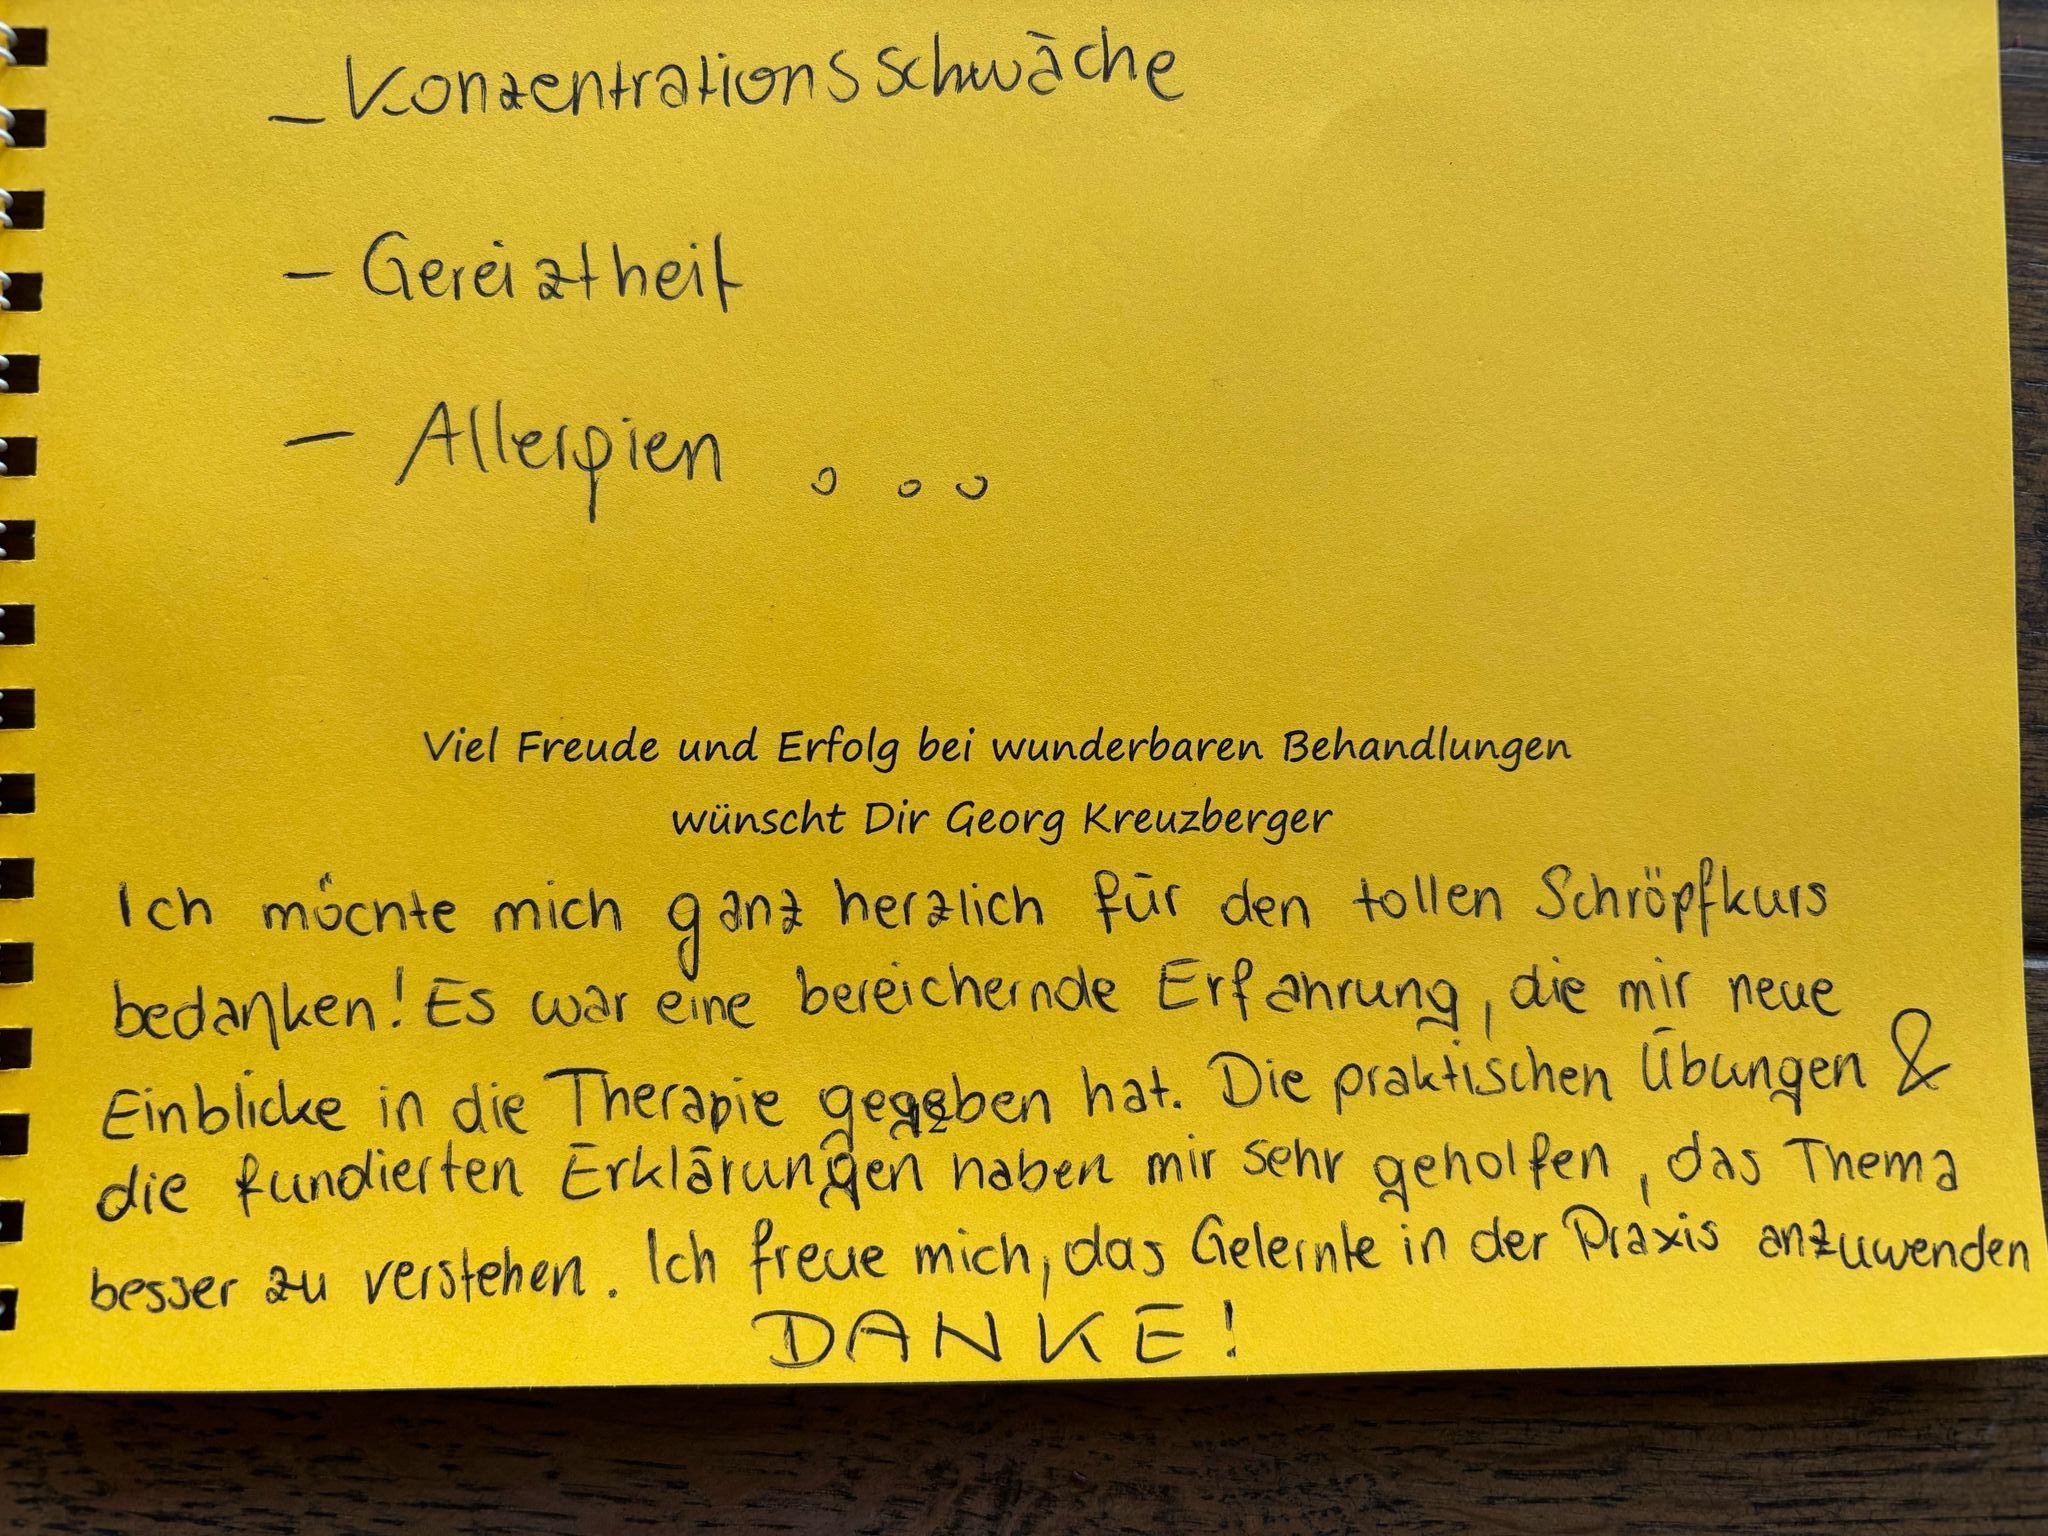 - Konzentrationsschwäche
- Gereiztheit
- Allergien ...
Viel Freude und Erfolg bei wunderbaren Behandlungen
wünscht Dir Georg Kreuzberger
Ich möchte mich ganz herzlich für den tollen Schröpfkurs
bedanken! Es war eine bereichernde Erfahrung, die mir neue
Einblicke in die Therapie gegeben hat. Die praktischen Übungen &
die fundierten Erklärungen haben mir sehr geholfen, das Thema
besser zu verstehen. Ich freue mich, das Gelernte in der Praxis anzuwenden
DANKE!